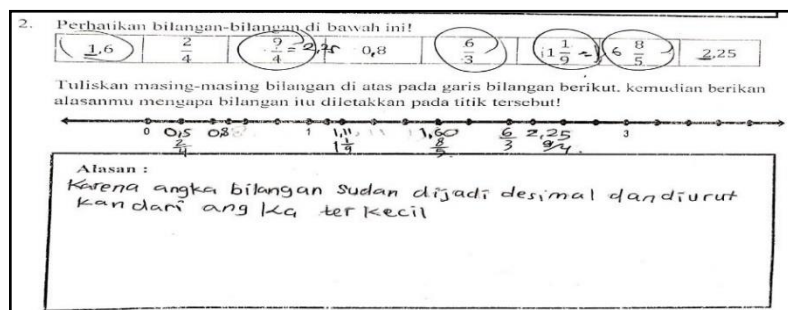 2. Perhatikan bilangan-bilangan di bawah ini!
1,6 2/4 9/4 = 2,25 0,8 6/3 1 1/9 = 1, 6 8/5 2,25
Tuliskan masing-masing bilangan di atas pada garis bilangan berikut. kemudian berikan
alasanmu mengapa bilangan itu diletakkan pada titik tersebut!
0 0,5 0,8 1 1,11 1,60 6/3 2,25 3
2/4 1 1/9 8/5 9/4
Alasan :
Karena angka bilangan sudan dijadi desimal dan diurut
kan dari angka terkecil